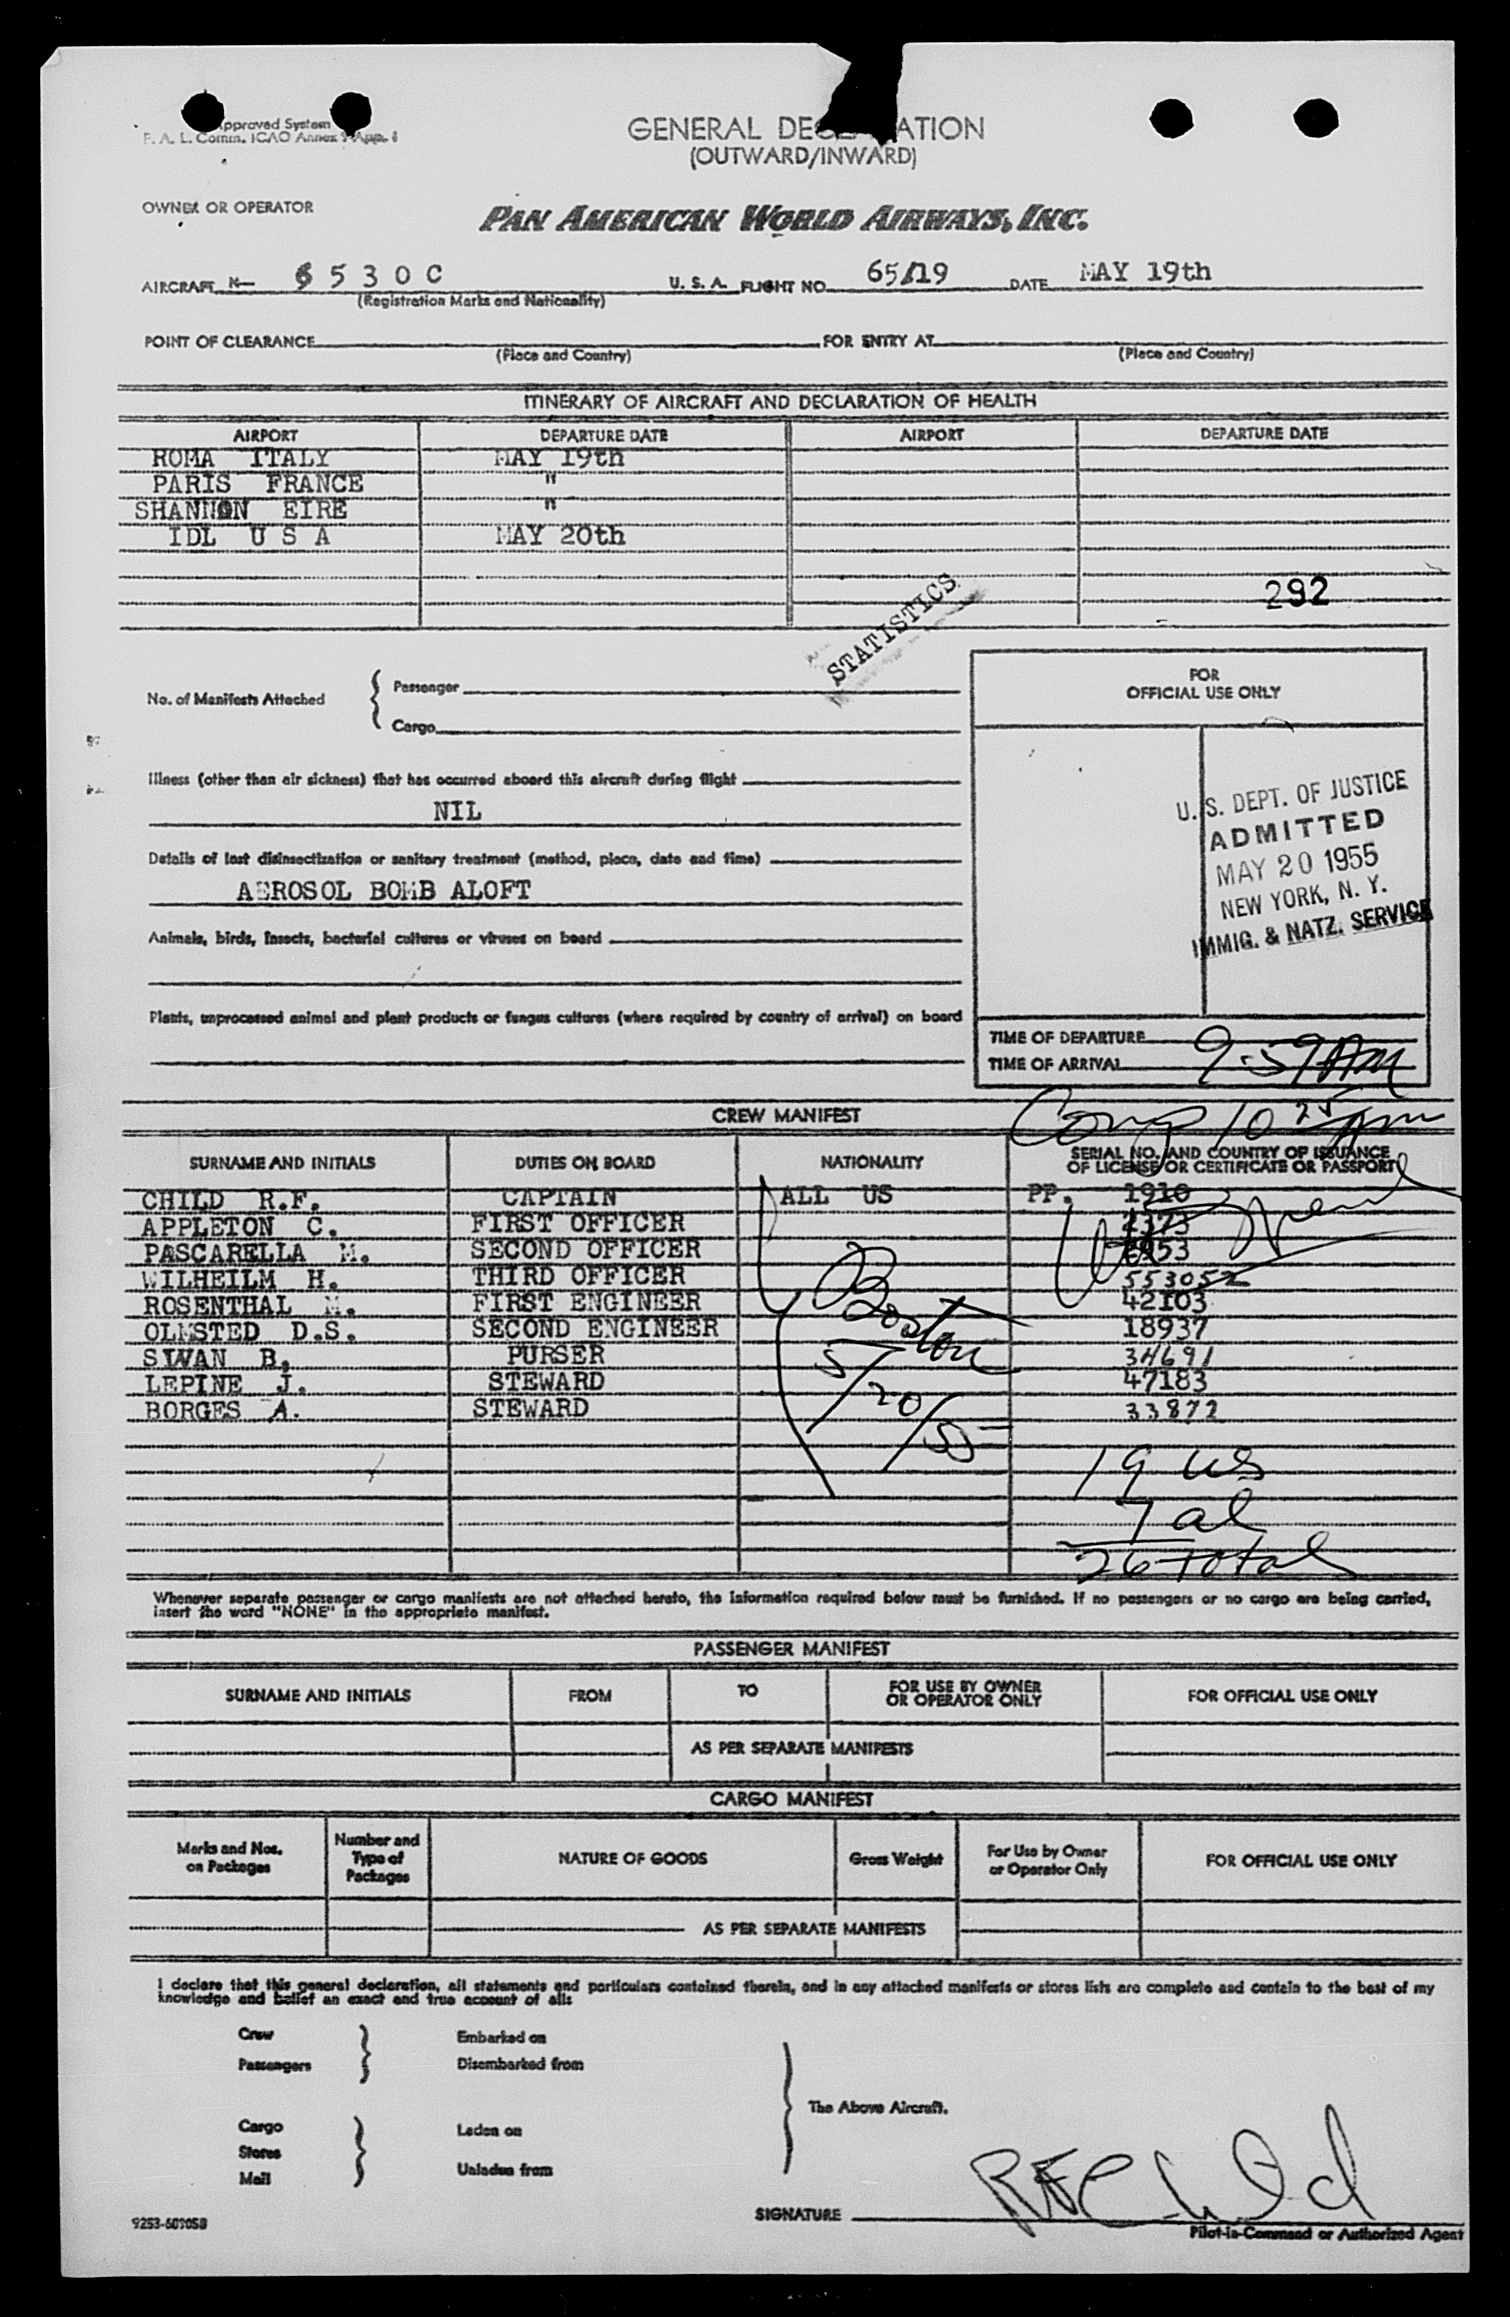 Approved System
F. A. L. Comm. ICAO Annex 9 App. 1
GENERAL DEC ATION
(OUTWARD/INWARD)
OWNER OR OPERATOR
PAN AMERICAN WORLD AIRWAYS, INC.
AIRCRAFT N— 6530C U. S. A. FLIGHT NO. 65/19 DATE MAY 19th
(Registration Marks and Nationality)
POINT OF CLEARANCE FOR ENTRY AT
(Place and Country) (Place and Country)
ITINERARY OF AIRCRAFT AND DECLARATION OF HEALTH
AIRPORT DEPARTURE DATE AIRPORT DEPARTURE DATE
ROMA ITALY MAY 19th
PARIS FRANCE "
SHANNON EIRE "
IDL U S A MAY 20th
292
STATISTICS
FOR
OFFICIAL USE ONLY
No. of Manifests Attached { Passenger
Cargo
Illness (other than air sickness) that has occurred aboard this aircraft during flight
NIL
U. S. DEPT. OF JUSTICE
ADMITTED
MAY 20 1955
NEW YORK, N. Y.
IMMIG. & NATZ. SERVICE
Details of last disinsectization or sanitary treatment (method, place, date and time)
AEROSOL BOMB ALOFT
Animals, birds, insects, bacterial cultures or viruses on board
Plants, unprocessed animal and plant products or fungus cultures (where required by country of arrival) on board
TIME OF DEPARTURE
TIME OF ARRIVAL 9:59 AM
Comp 10 25 Am
CREW MANIFEST
SURNAME AND INITIALS DUTIES ON BOARD NATIONALITY SERIAL NO. AND COUNTRY OF ISSUANCE
OF LICENSE OR CERTIFICATE OR PASSPORT
CHILD R.F. CAPTAIN ALL US PP. 1910
APPLETON C. FIRST OFFICER 2373
PASCARELLA M. SECOND OFFICER
WILHEILM H. THIRD OFFICER 553052
ROSENTHAL M. FIRST ENGINEER 42103
OLMSTED D.S. SECOND ENGINEER 18937
SWAN B. PURSER 34691
LEPINE J. STEWARD 47183
BORGES A. STEWARD 33872
Boston
5/20/55
19 us
7 al
26 total
Whenever separate passenger or cargo manifests are not attached hereto, the information required below must be furnished. If no passengers or no cargo are being carried,
insert the word "NONE" in the appropriate manifest.
PASSENGER MANIFEST
SURNAME AND INITIALS FROM TO FOR USE BY OWNER
OR OPERATOR ONLY FOR OFFICIAL USE ONLY
AS PER SEPARATE MANIFESTS
CARGO MANIFEST
Marks and Nos.
on Packages Number and
Type of
Packages NATURE OF GOODS Gross Weight For Use by Owner
or Operator Only FOR OFFICIAL USE ONLY
AS PER SEPARATE MANIFESTS
I declare that this general declaration, all statements and particulars contained therein, and in any attached manifests or stores lists are complete and contain to the best of my
knowledge and belief an exact and true account of all:
Crew Embarked on
Passengers Disembarked from
The Above Aircraft.
Cargo Laden on
Stores
Mail Unladen from
SIGNATURE RF Child
Pilot-in-Command or Authorized Agent
9253-609058